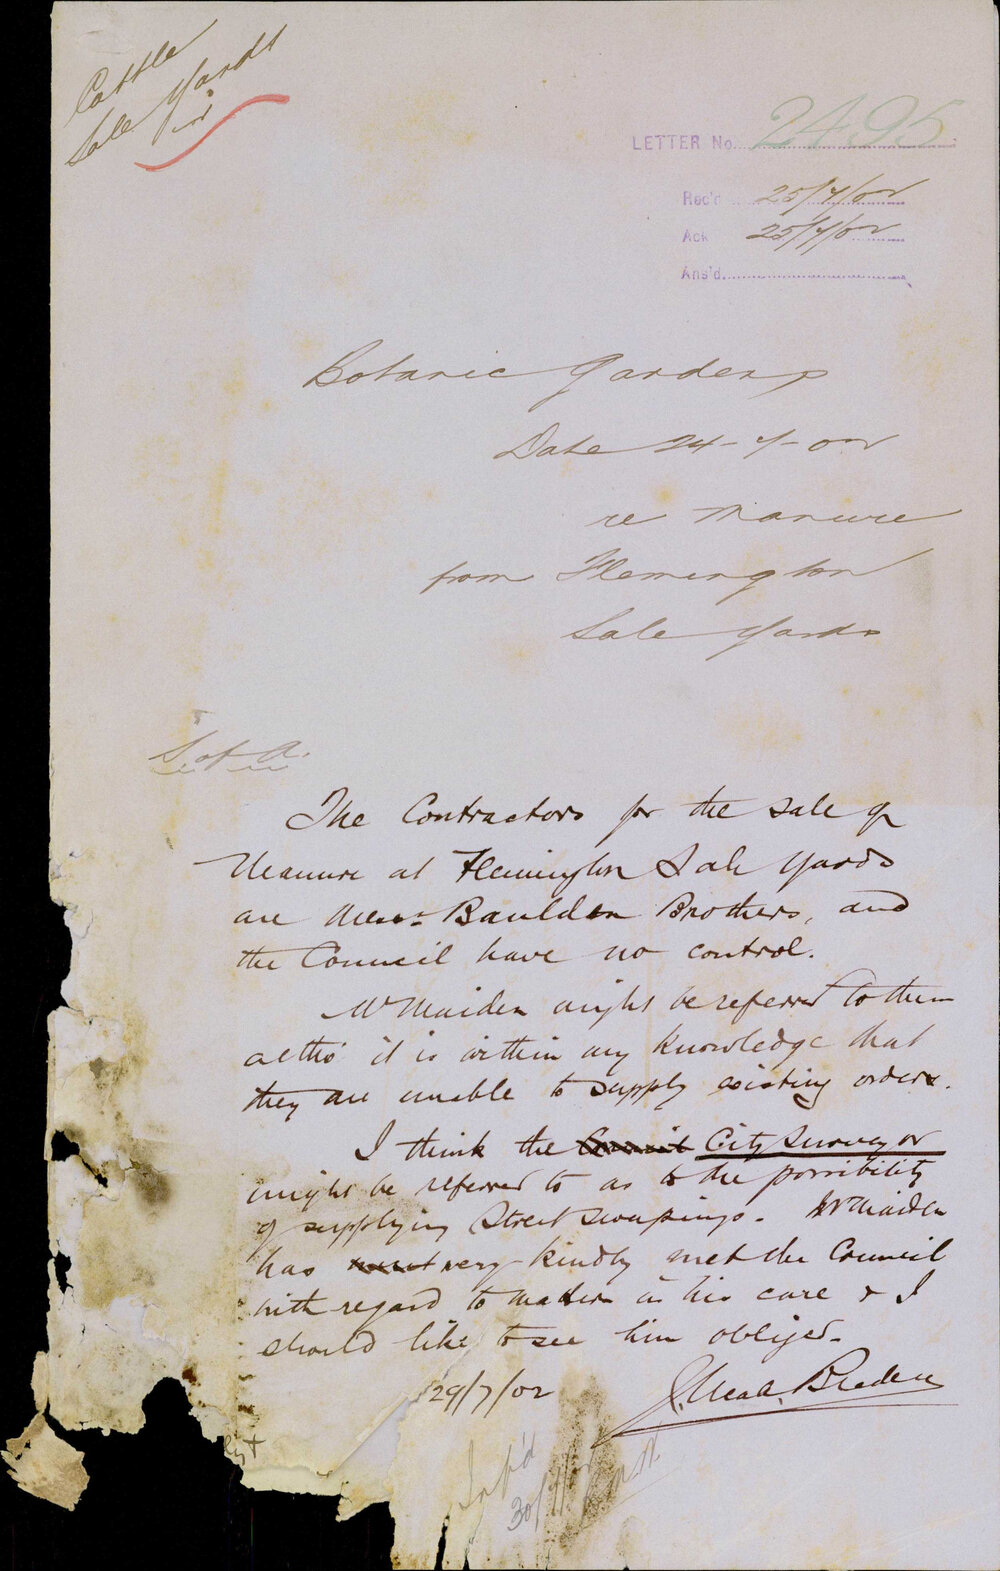 Cattle
Sale Yards
LETTER No. 2495
Rec'd 25/7/02
Ack 25/7/02
Ans'd
Botanic Gardens
Date 24-7-02
re manure
from Flemington
Sale Yards
The Contractors for the sale of
Manure at Flemington Sale Yards
are Messrs Bauldon Brothers, and
the Council have no control.
Mr Maiden might be referred to them
altho' it is within my knowledge that
they are unable to supply existing orders.
I think the Council City Surveyor
might be referred to as to the possibility
of supplying Street sweepings. Mr Maiden
has very kindly met the Council
with regard to matters in his care & I
should like to see him obliged.
29/7/02
Inf'd
30/7/02